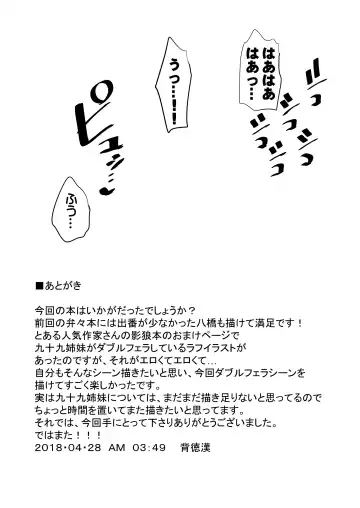 はあはあ
はあっ…
うっ…！！
ヂュッ
ヂュッ
ヂュッ
ピュッ…
ふう…
■あとがき
今回の本はいかがだったでしょうか？
前回の弁々本には出番が少なかった八橋も描けて満足です！
とある人気作家さんの影狼本のおまけページで
九十九姉妹がダブルフェラしているラフイラストが
あったのですが、それがエロくてエロくて…
自分もそんなシーン描きたいと思い、今回ダブルフェラシーンを
描けてすごく楽しかったです。
実は九十九姉妹については、まだまだ描き足りないと思ってるので
ちょっと時間を置いてまた描きたいと思ってます。
それでは、今回手にとって下さりありがとうございました。
ではまた！！！
2018・04・28 AM 03:49 背徳漢